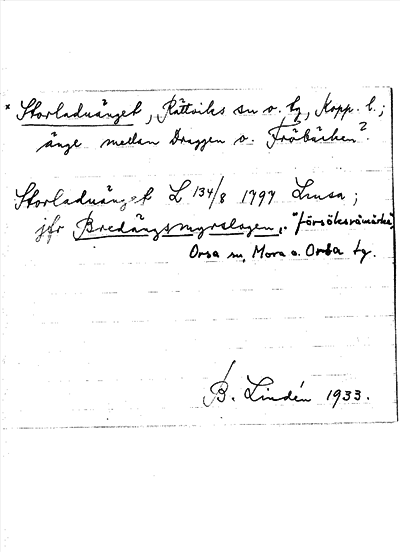 * Storladuänget, Rättviks sn o. tg, Kopp. l.;
änge mellan Draggen o. Fröbäcken?
Storladuänget L 134/8 1797 Linsa;
jfr Bredängsmyrslogen,
Orsa sn, Mora o. Orsa tg.
B. Lindén 1933.